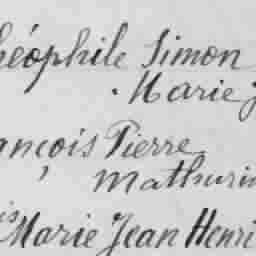 héophile Simon
Marie J
ançois Pierre
Mathurin
is Marie Jean Henri